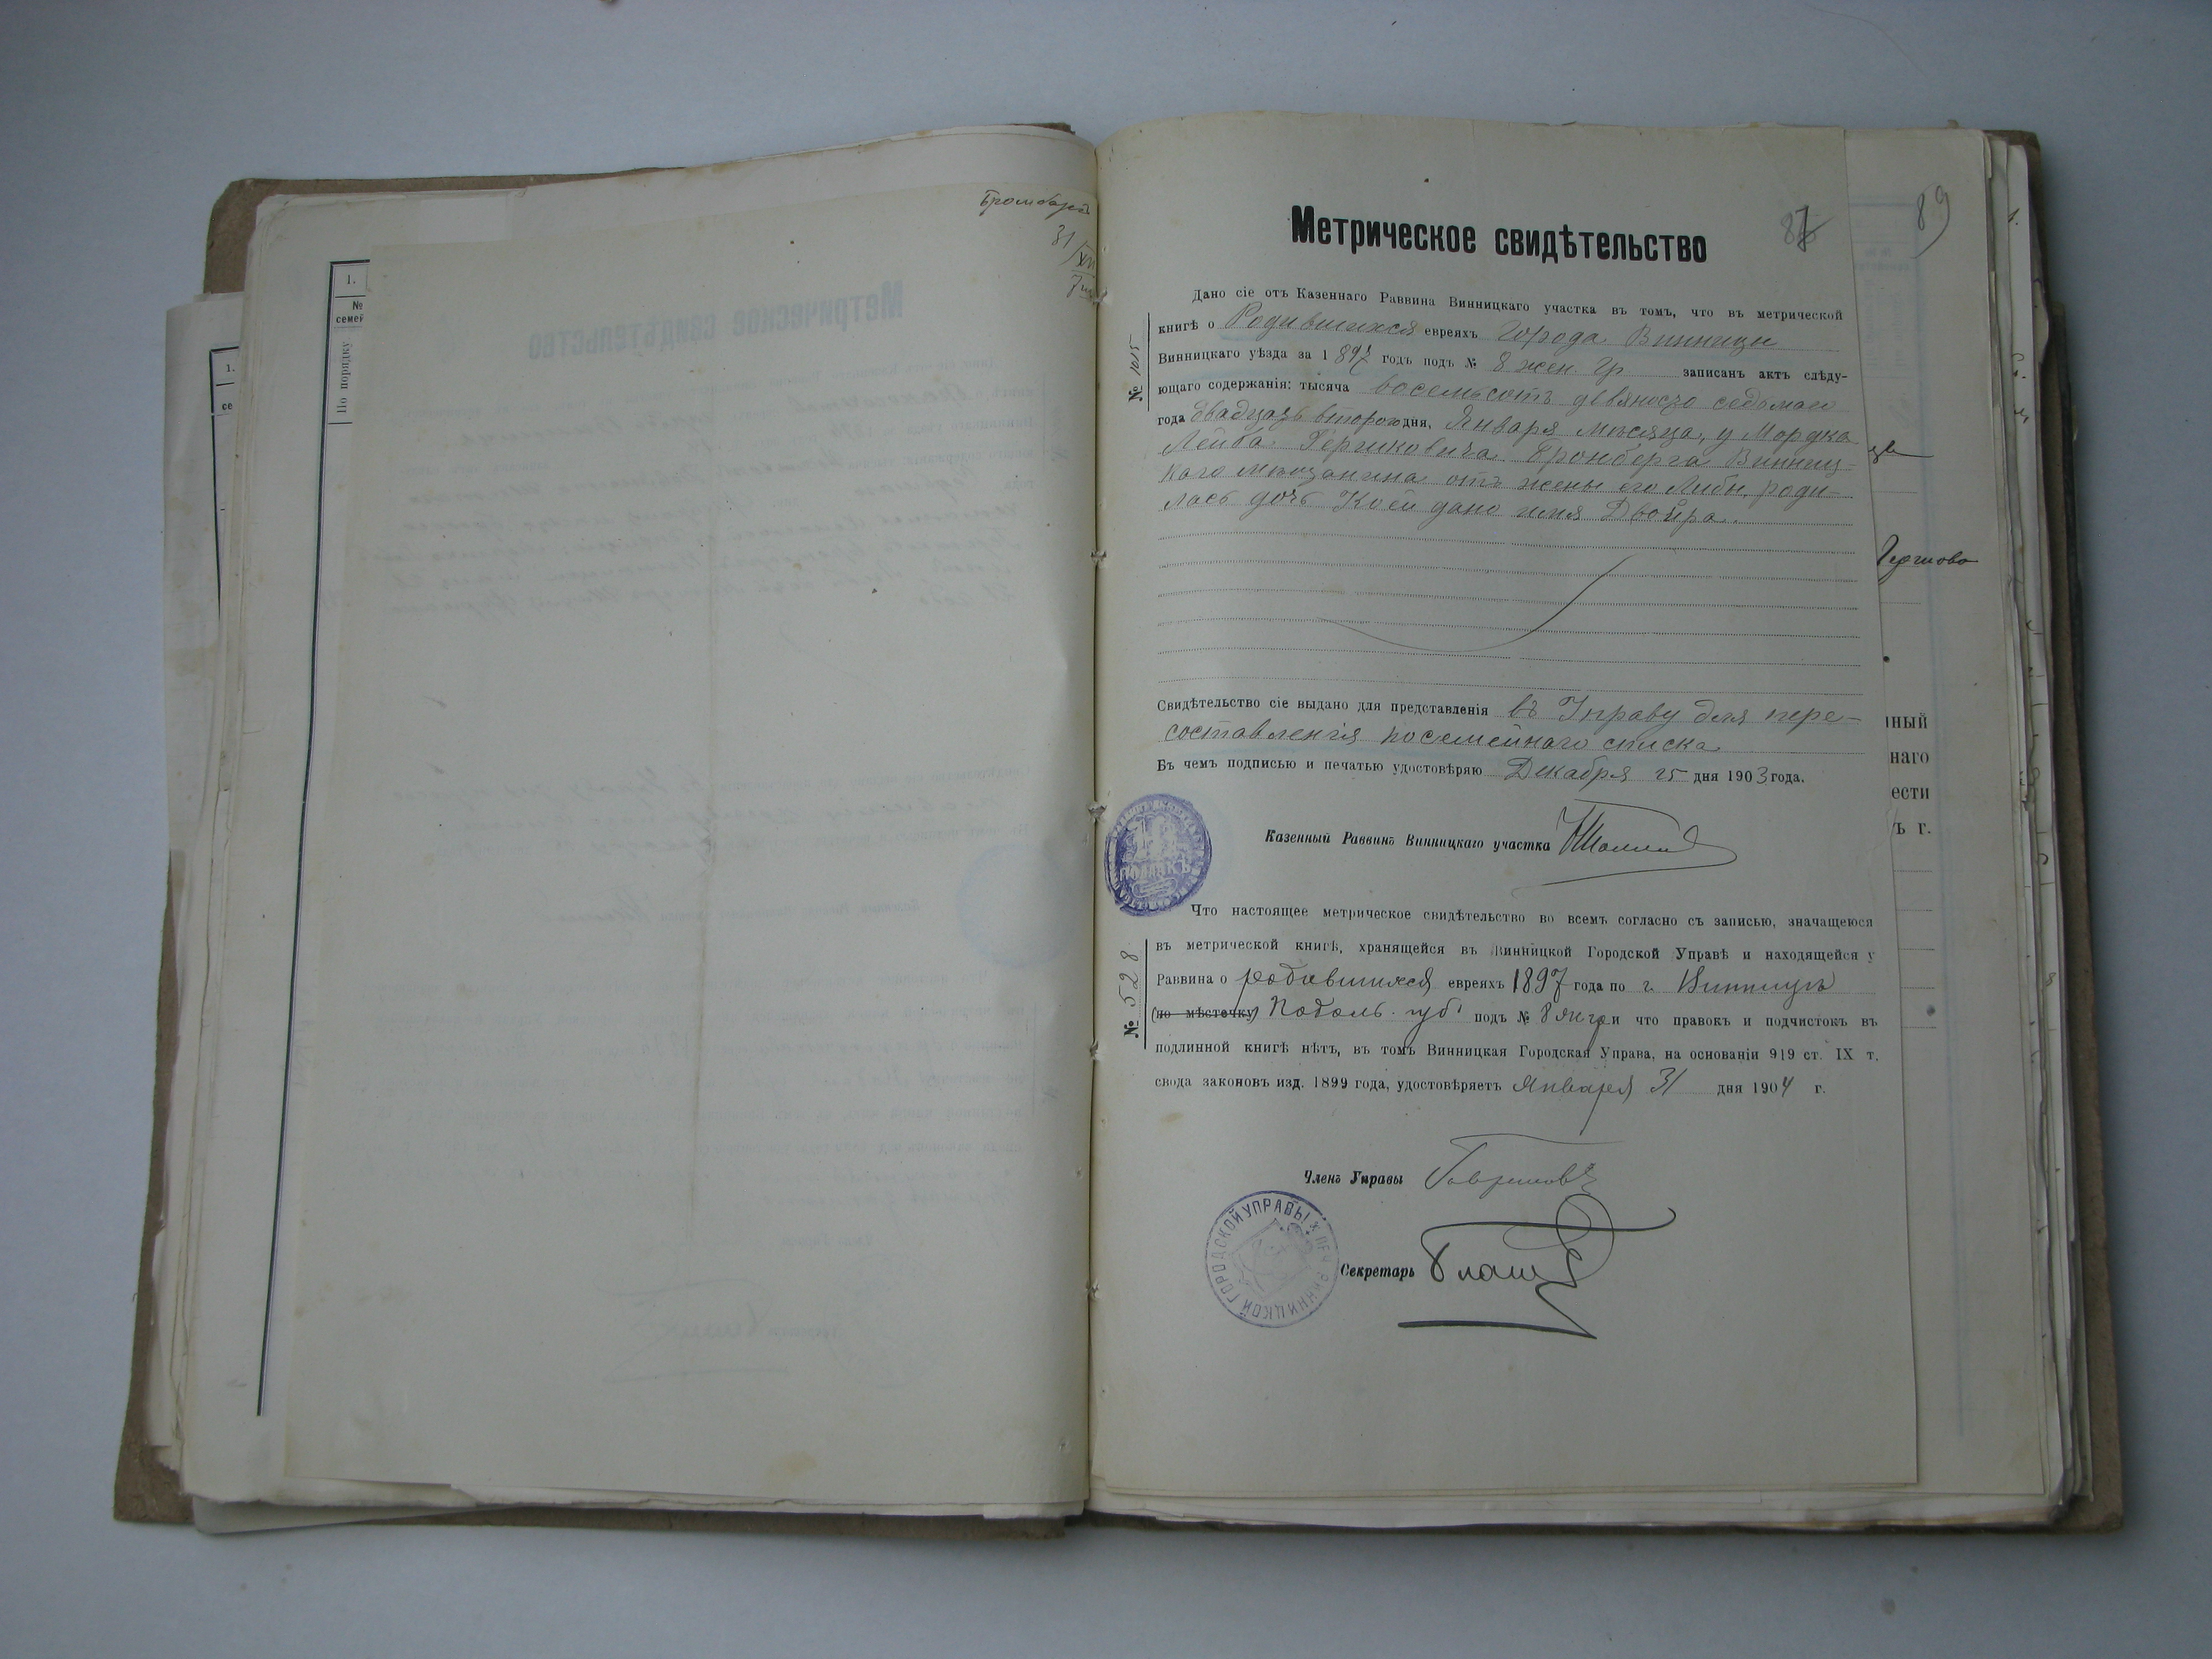 1.
№
семей
По порядку
1.
31
Метрическое свидѣтельство
87
89
№ 1015
Дано сіе отъ Казеннаго Раввина Винницкаго участка въ томъ, что въ метрической
книгѣ о Родившихся евреяхъ города Винницы
Винницкаго уѣзда за 1897 годъ подъ № 8 жен. гр записанъ актъ слѣду-
ющаго содержанія: тысяча восемьсотъ девяносто седьмаго
года двадцать второго дня, Января мѣсяца, у Мордка
Лейба Гершковича Бронберга Винниц-
каго мѣщанина отъ жены его Либы, роди-
лась дочь Коей дано имя Двойра.
Свидѣтельство сіе выдано для представленія въ Управу для пере-
составленія посемейнаго списка
Въ чемъ подписью и печатью удостовѣряю Декабря 25 дня 1903 года.
Казенный Раввинъ Винницкаго участка
ПОЛЛАКЪ
№ 528
Что настоящее метрическое свидѣтельство во всемъ согласно съ записью, значащеюся
въ метрической книгѣ, хранящейся въ Винницкой Городской Управѣ и находящейся у
Раввина о родившихся евреяхъ 1897 года по г. Винницѣ
(по мѣстечку) Подоль. губ. подъ № 8 ж гр и что правокъ и подчистокъ въ
подлинной книгѣ нѣтъ, въ томъ Винницкая Городская Управа, на основаніи 919 ст. IX т.
свода законовъ изд. 1899 года, удостовѣряетъ Января 31 дня 1904 г.
Членъ Управы
Секретарь
ВИННИЦКОЙ ГОРОДСКОЙ УПРАВЫ
нный
наго
ести
ъ г.